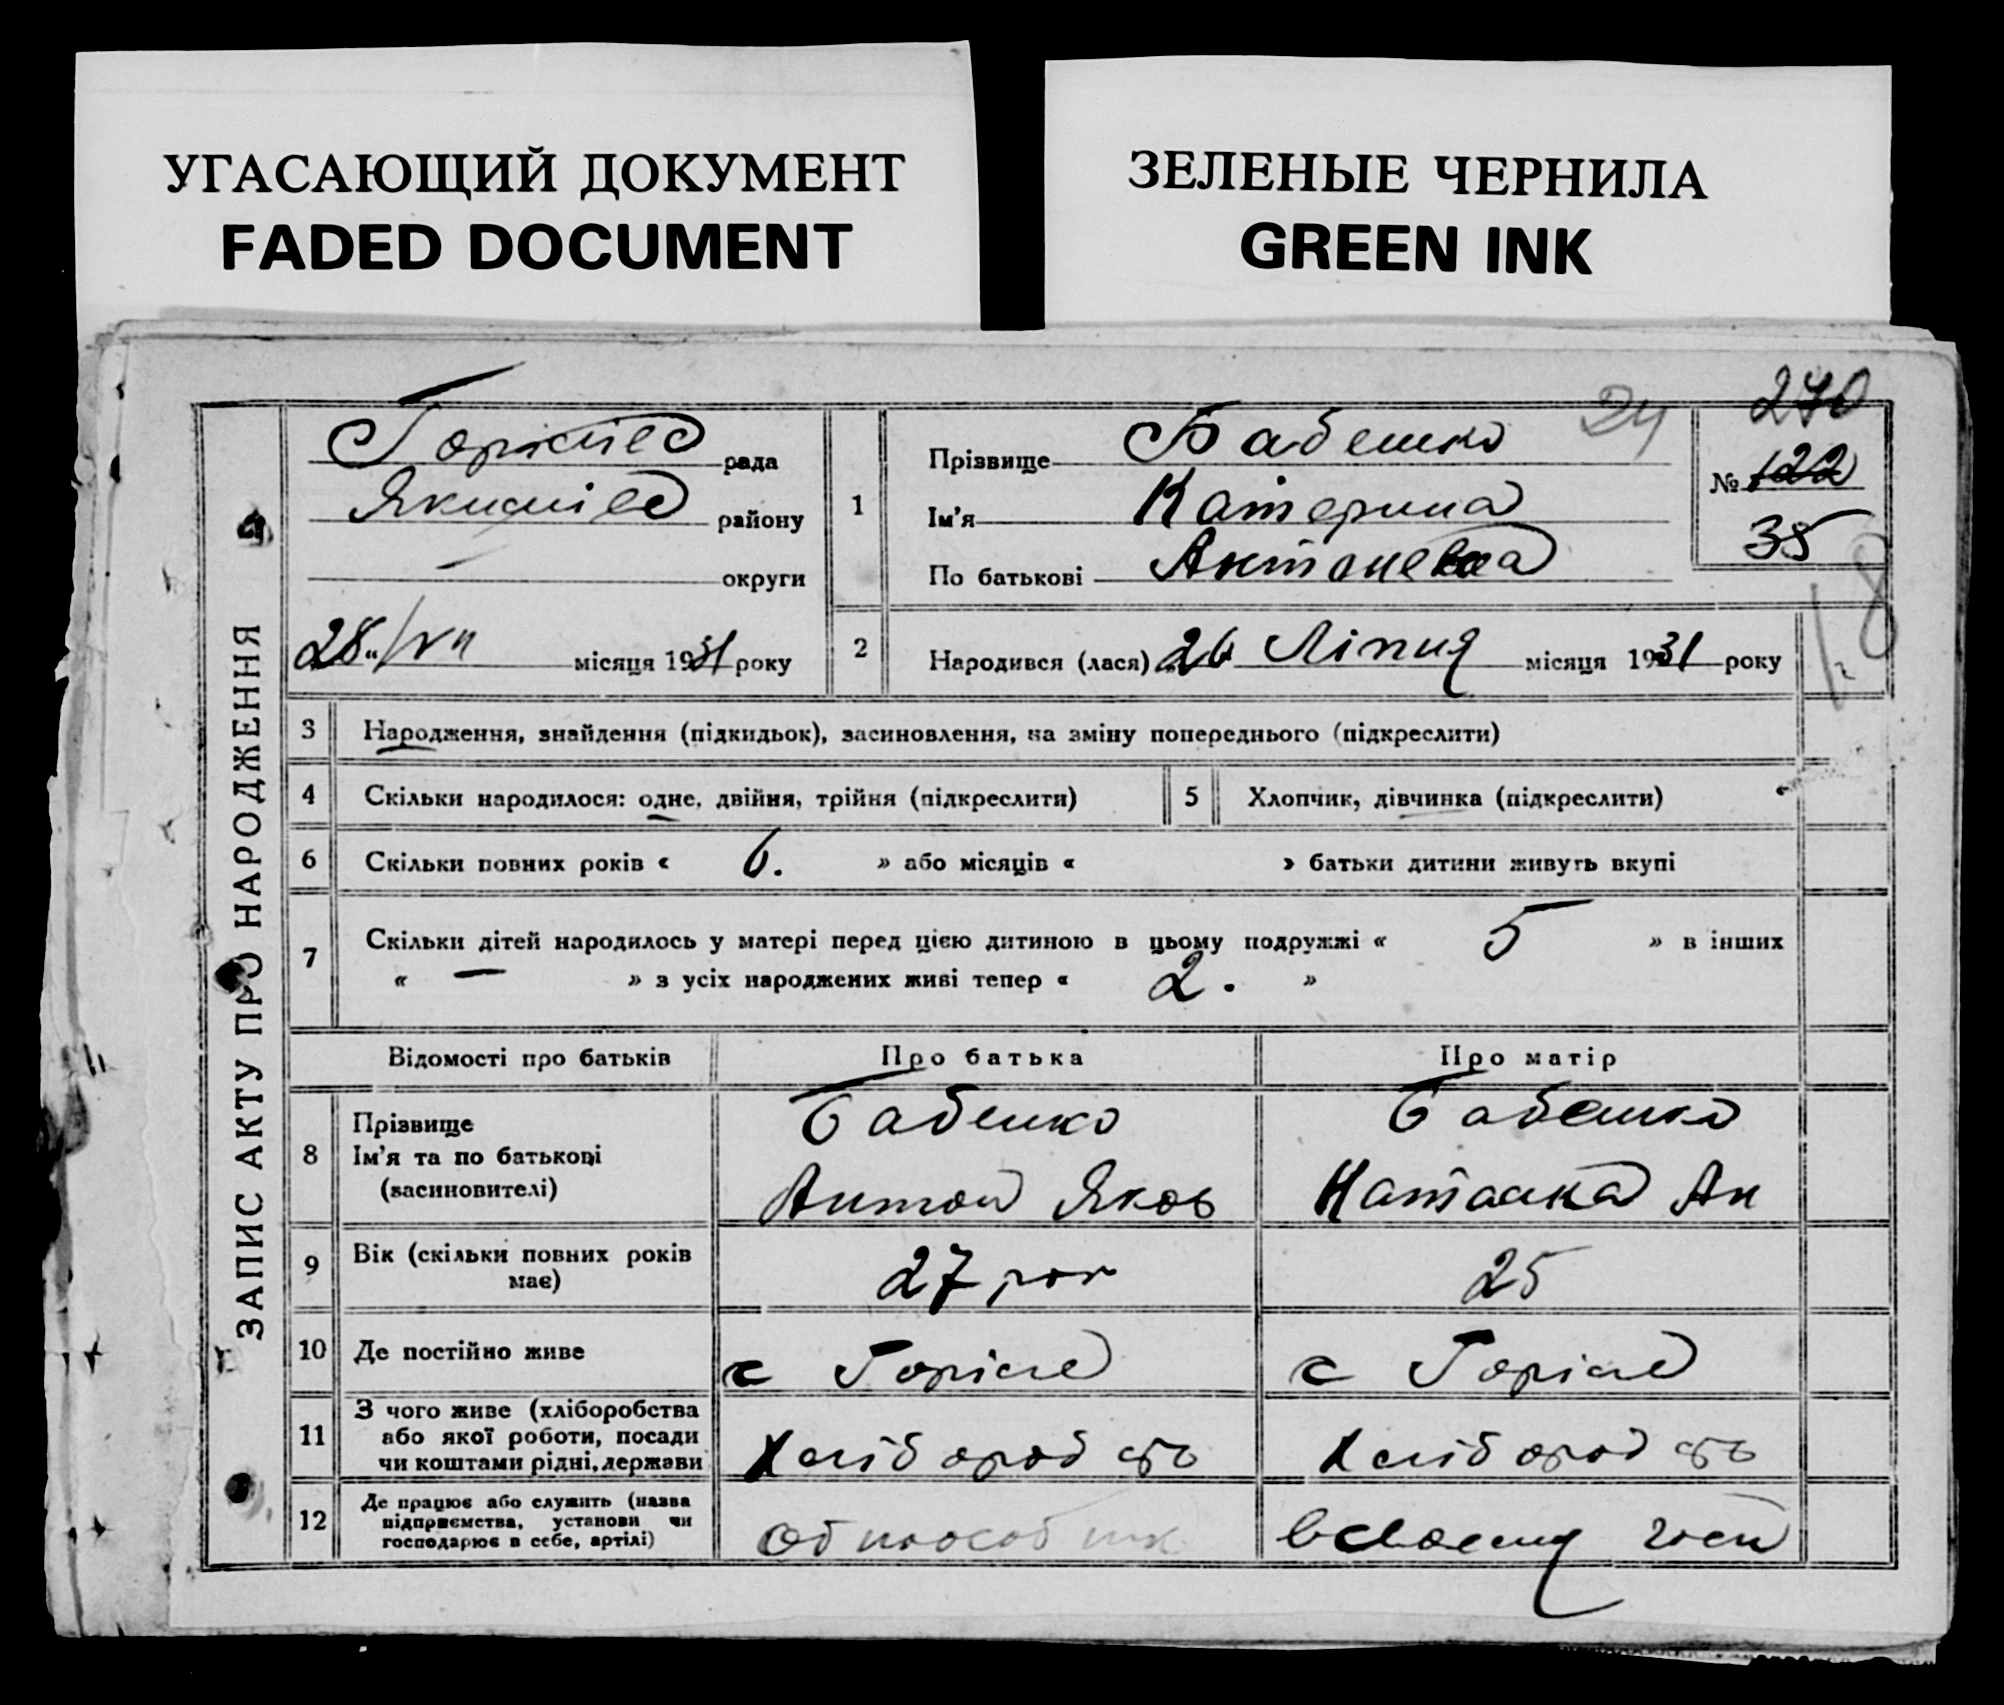 УГАСАЮЩИЙ ДОКУМЕНТ
FADED DOCUMENT
ЗЕЛЕНЫЕ ЧЕРНИЛА
GREEN INK
ЗАПИС АКТУ ПРО НАРОДЖЕННЯ
рада
району
округи
28 / VII місяця 1931 року
24
270
№ 122
35
1 Прізвище Бабенко
Ім'я Катерина
По батькові Антоневна
2 Народився (лася) „26" Ліпня місяця 1931 року
3 Народження, знайдення (підкидьок), засиновлення, на зміну попереднього (підкреслити)
4 Скільки народилося: одне, двійня, трійня (підкреслити)
5 Хлопчик, дівчинка (підкреслити)
6 Скільки повних років « 6. » або місяців « » батьки дитини живуть вкупі
7 Скільки дітей народилось у матері перед цією дитиною в цьому подружжі « 5 » в інших
« — » з усіх народжених живі тепер « 2. »
Відомості про батьків Про батька Про матір
8 Прізвище
Ім'я та по батькові
(засиновителі)
Бабенко
Антон Яков
Бабенко
Наталка Ан
9 Вік (скільки повних років
має)
27 рок
25
10 Де постійно живе
с
с
11 З чого живе (хліборобства
або якої роботи, посади
чи коштами рідні, держави
Хлібороб ств
Хлібороб ств
12 Де працює або служить (назва
підприємства, установи чи
господарює в себе, артілі)
одноособник
в своєму госп